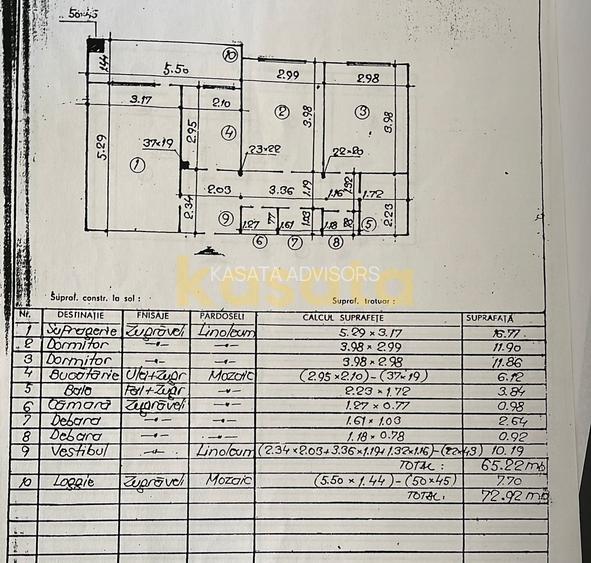 50×45
1.44
5.50
10
2.99
2.98
3.17
2.10
2
3
3.98
3.98
5.29
2.95
4
37×19
23×22
22×20
1
2.03
3.36
1.19
1.16
1.32
1.72
2.34
9
1.27
77
1.61
1.03
1.18
5
2.23
6
7
8
KASATA ADVISORS
kasata
Supraf. constr. la sol :
Supraf. trotuar :
Nr. DESTINAȚIE FNISAJE PARDOSELI CALCUL SUPRAFEȚE SUPRAFAȚĂ
1 Sufragerie Zugrăveli Linoleum 5.29 × 3.17 16.77
2 Dormitor —〃— —〃— 3.98 × 2.99 11.90
3 Dormitor —〃— —〃— 3.98 × 2.98 11.86
4 Bucătărie Ulei+Zugr Mozaic (2.95×2.10)-(37×19) 6.12
5 Baie Fai+Zugr —〃— 2.23 × 1.72 3.84
6 Cămara Zugrăveli —〃— 1.27 × 0.77 0.98
7 Debara —〃— —〃— 1.61 × 1.03 2.64
8 Debara —〃— —〃— 1.18 × 0.78 0.92
9 Vestibul —〃— Linoleum (2.34×2.03+3.36×1.19+1.32×1.16)-(22×43) 10.19
TOTAL: 65.22 mp
10 Loggie Zugrăveli Mozaic (5.50 × 1.44)-(50×45) 7.70
TOTAL: 72.92 mp